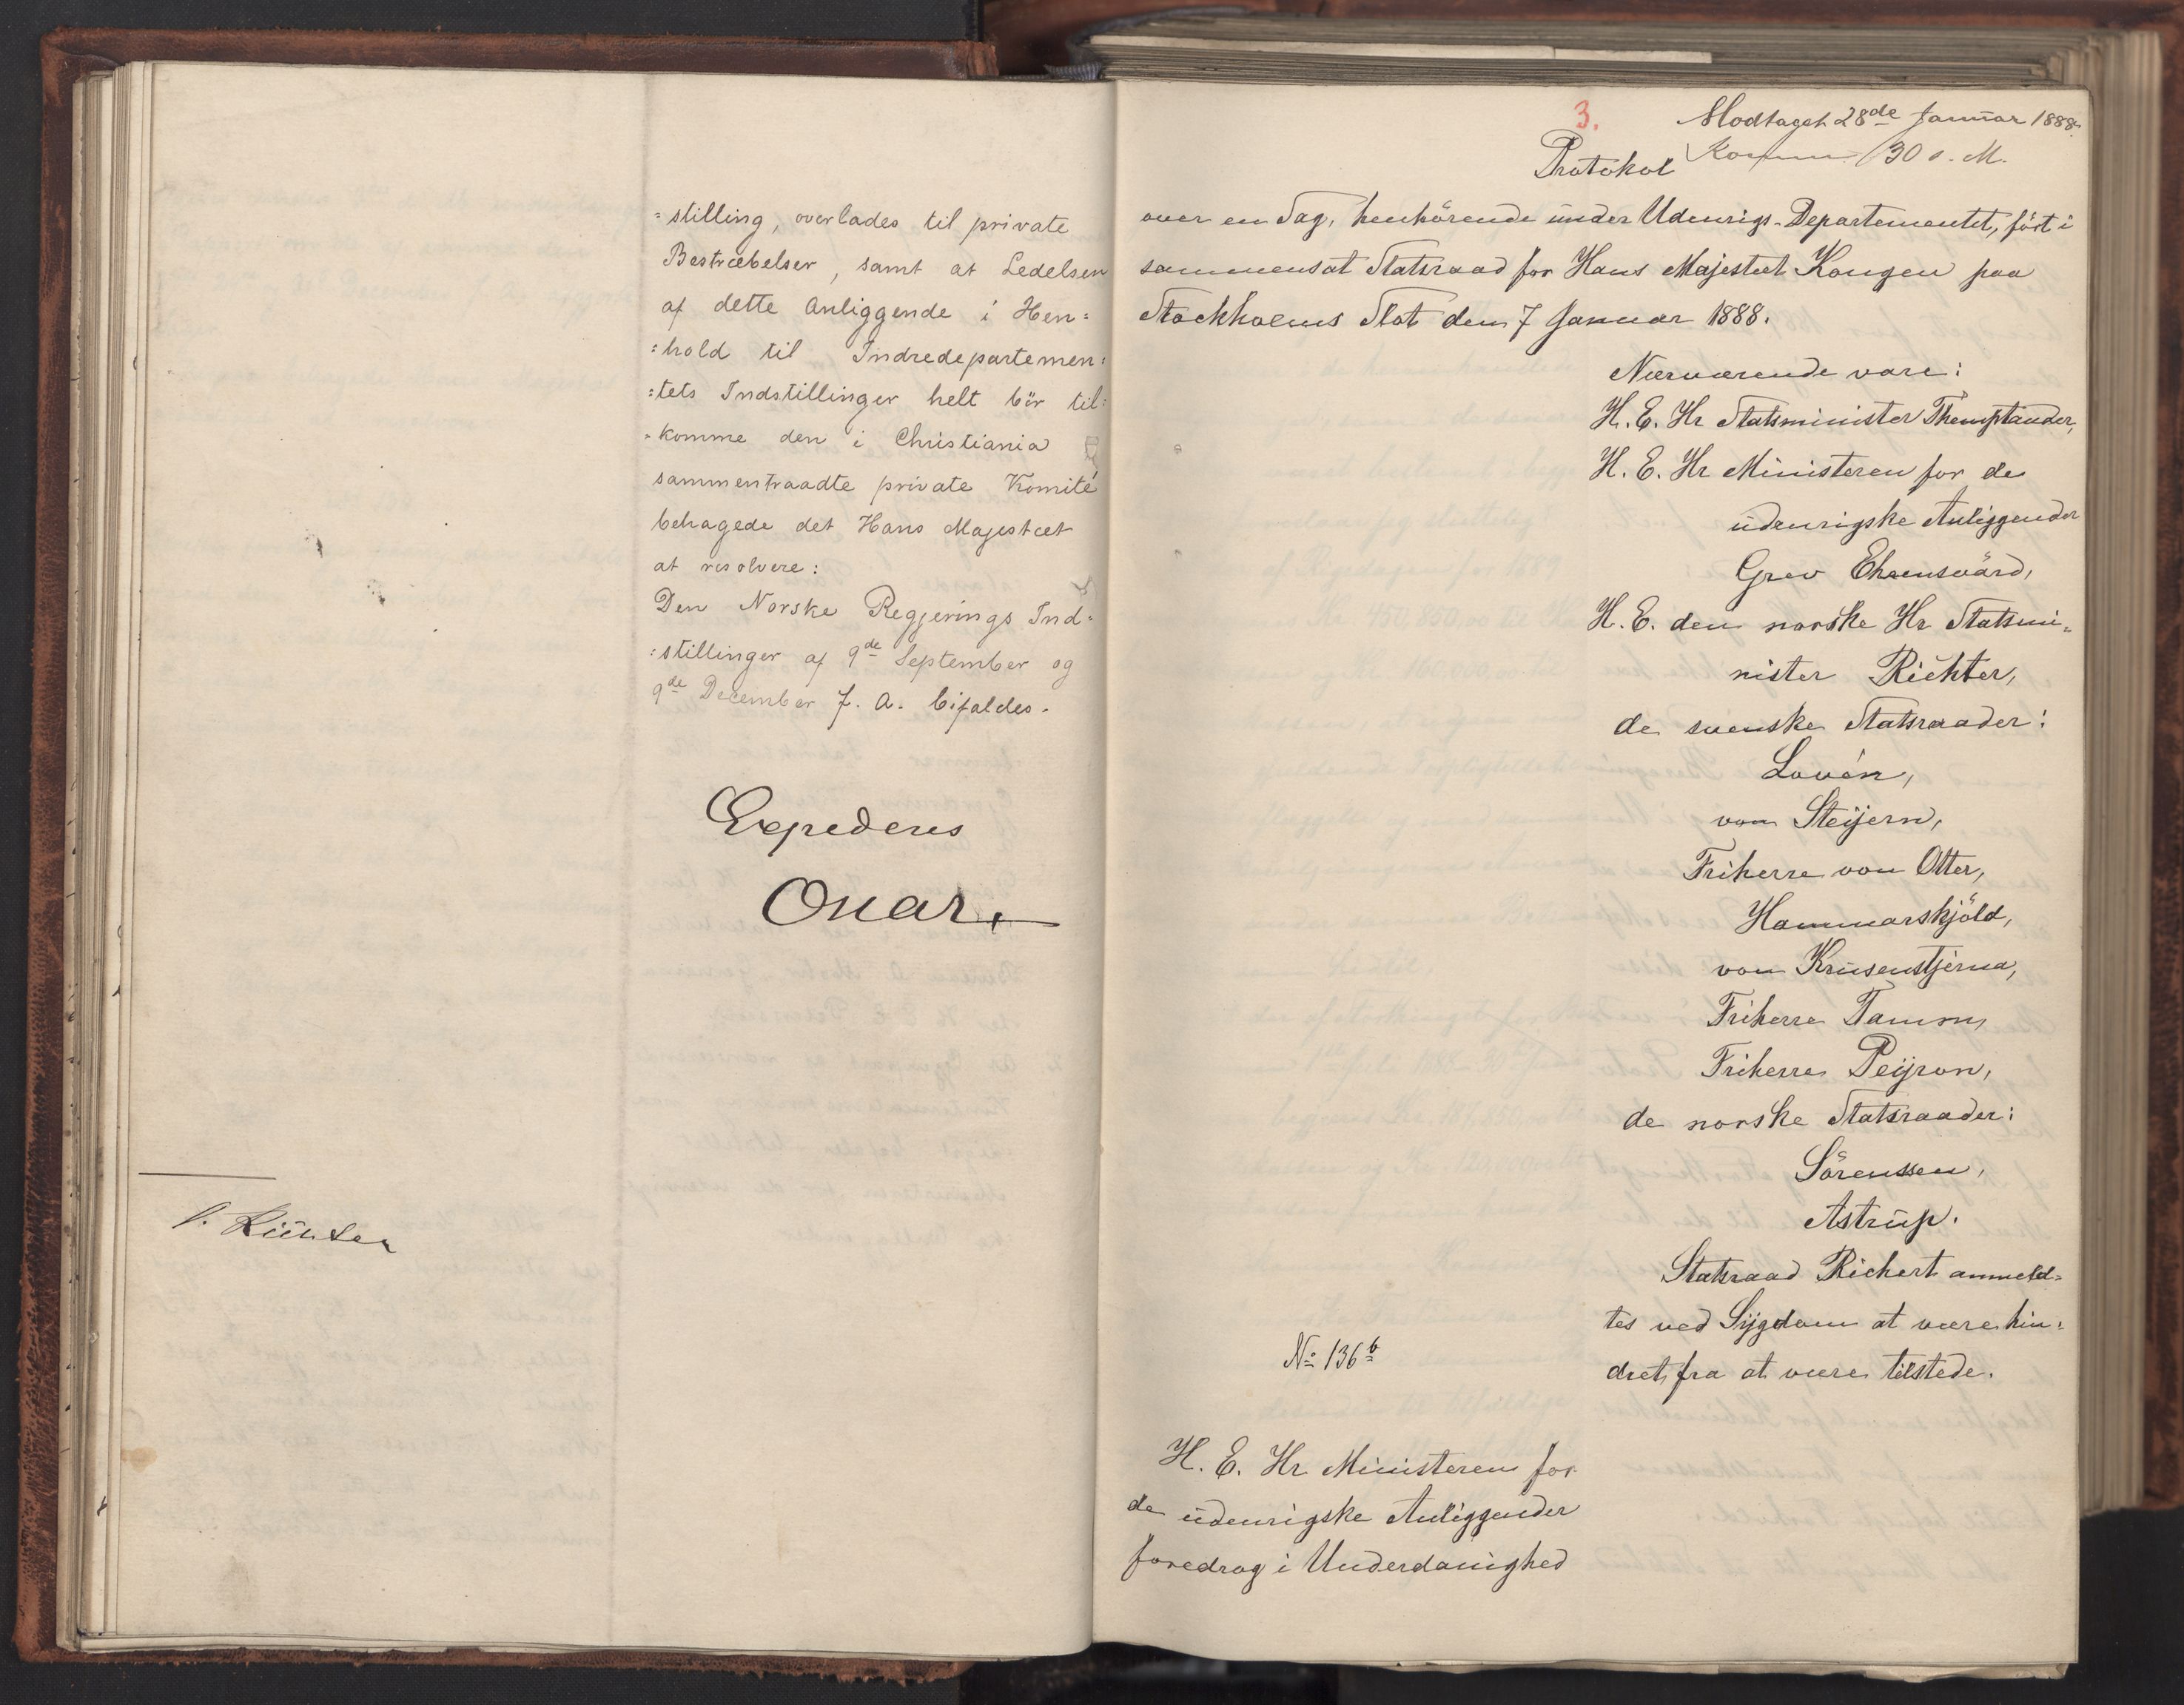 =stilling, overlades til private
Bestræbelser, samt at Ledelsen
af dette Anliggende i Hen=
=hold til Indredepartemen=
=tets Indstillinger helt bör til=
=komme den i Christiania
sammentraadte private Komité
behagede det Hans Majestæt
at resolvere:
Den Norske Regjerings Ind=
=stillinger af 9de September og
9de December f. A. bifaldes.
Expederes
Oscar.
3. Modtaget 28de Januar 1888.
30 s. M.
Protokol
over en Sag, henhörende under Udenrigs-Departementet, fört i
sammensat Statsraad for Hans Majestæt Kongen paa
Stockholms Slot den 7 Januar 1888.
Nærværende vare:
H. E. Hr Statsminister Themptander,
H. E. Hr Ministeren for de
udenrigske Anliggender
Grev Ehrensvärd,
H. E. den norske Hr Statsmi=
nister Richter,
de svenske Statsraader:
Lovén,
von Steijern,
Friherre von Otter,
Hammarskjöld,
von Krusenstjerna,
Friherre Tamm,
Friherre Peijron,
de norske Statsraader:
Sörenssen,
Astrup.
Statsraad Richert anmeld=
tes ved Sygdom at være hin=
dret fra at være tilstede.
No 136b
H. E. Hr Ministeren for
de udenrigske Anliggender
foredrog i Underdanighed